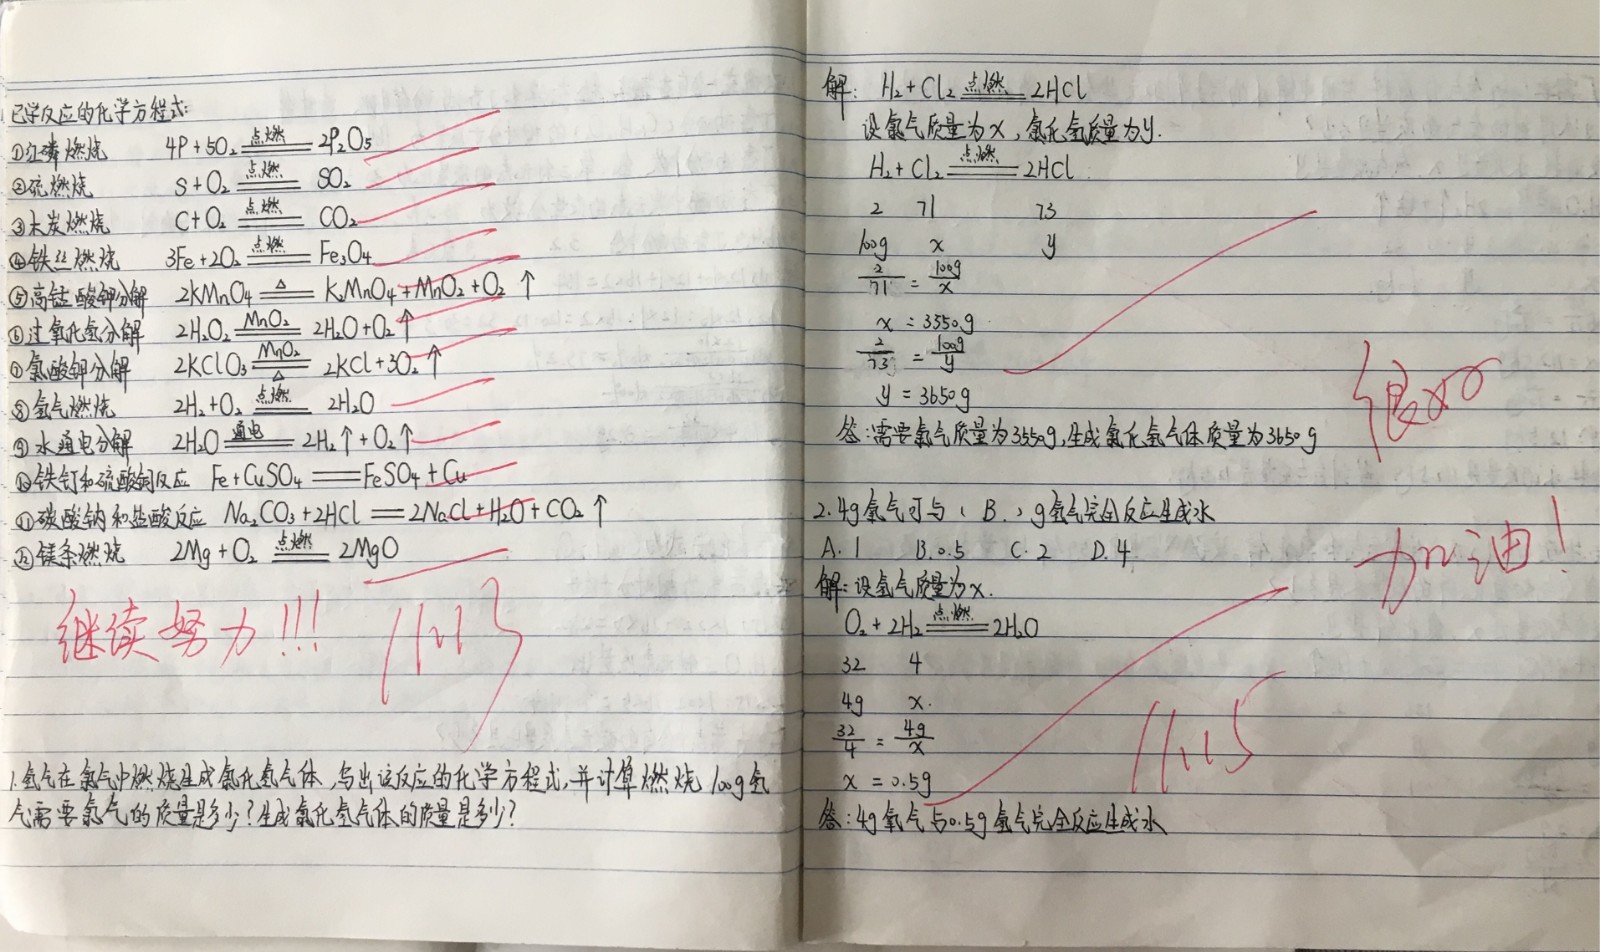 已学反应的化学方程式:
①红磷燃烧 4P+5O₂ 点燃 2P₂O₅
②硫燃烧 S+O₂ 点燃 SO₂
③木炭燃烧 C+O₂ 点燃 CO₂
④铁丝燃烧 3Fe+2O₂ 点燃 Fe₃O₄
⑤高锰酸钾分解 2KMnO₄ △ K₂MnO₄+MnO₂+O₂↑
⑥过氧化氢分解 2H₂O₂ MnO₂ 2H₂O+O₂↑
⑦氯酸钾分解 2KClO₃ MnO₂ △ 2KCl+3O₂↑
⑧氢气燃烧 2H₂+O₂ 点燃 2H₂O
⑨水通电分解 2H₂O 通电 2H₂↑+O₂↑
⑩铁钉和硫酸铜反应 Fe+CuSO₄ == FeSO₄+Cu
⑪碳酸钠和盐酸反应 Na₂CO₃+2HCl == 2NaCl+H₂O+CO₂↑
⑫镁条燃烧 2Mg+O₂ 点燃 2MgO
继续努力!!!
11.13
1.氢气在氯气中燃烧生成氯化氢气体,写出该反应的化学方程式,并计算燃烧100g氢
气需要氯气的质量是多少?生成氯化氢气体的质量是多少?
解: H₂+Cl₂ 点燃 2HCl
设氯气质量为x,氯化氢质量为y.
H₂+Cl₂ 点燃 2HCl
2 71 73
100g x y
2/71 = 100g/x
x=3550g
2/73 = 100g/y
y=3650g
答:需要氯气质量为3550g,生成氯化氢气体质量为3650g
很好
2.4g氧气可与(B.)g氢气完全反应生成水
A.1 B.0.5 C.2 D.4
加油!
解:设氢气质量为x.
O₂+2H₂ 点燃 2H₂O
32 4
4g x.
32/4 = 4g/x
x=0.5g
11.15
答:4g氧气与0.5g氢气完全反应生成水